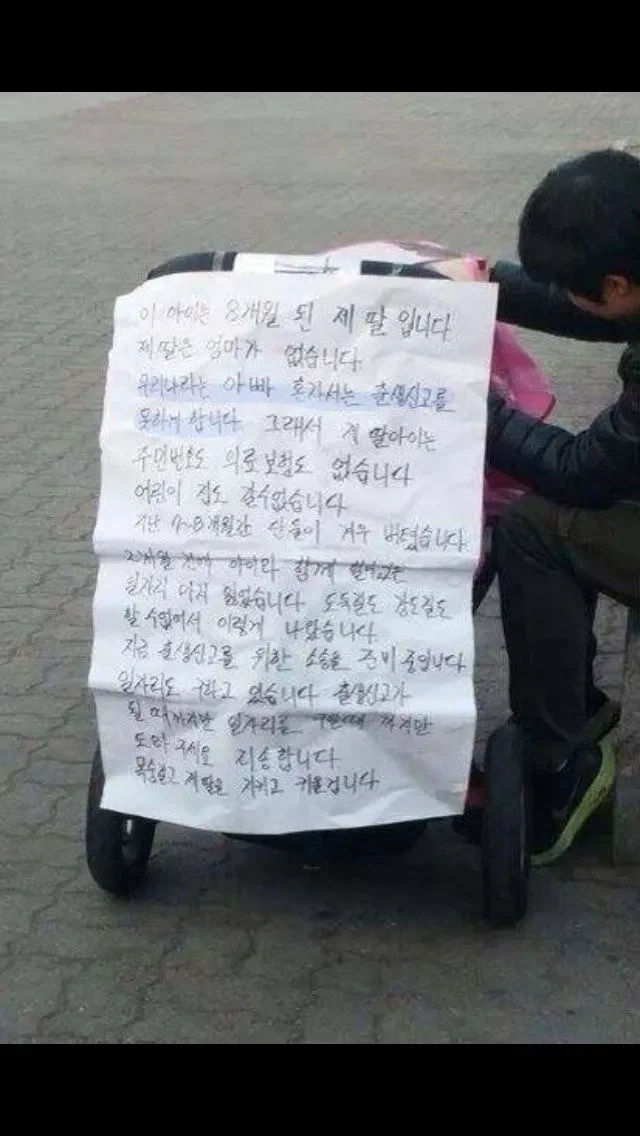 이 아이는 8개월 된 제 딸입니다
제 딸은 엄마가 없습니다
우리나라는 아빠 혼자서는 출생신고를
못하게 합니다 그래서 제 딸아이는
주민번호도 의료보험도 없습니다
어린이 집도 갈수없습니다
지난 7~8개월간 단둘이 겨우 버텼습니다
아이와 함께
일자리 마저 잃었습니다 도둑질도 강도질도
할 수 없어서 이렇게 나왔습니다
지금 출생신고를 위한 소송을 준비 중입니다
일자리도 구하고 있습니다 출생신고가
될 때까지만 일자리를 구할때 까지만
도와 주세요 죄송합니다
목숨걸고 제 딸을 지키고 키울겁니다